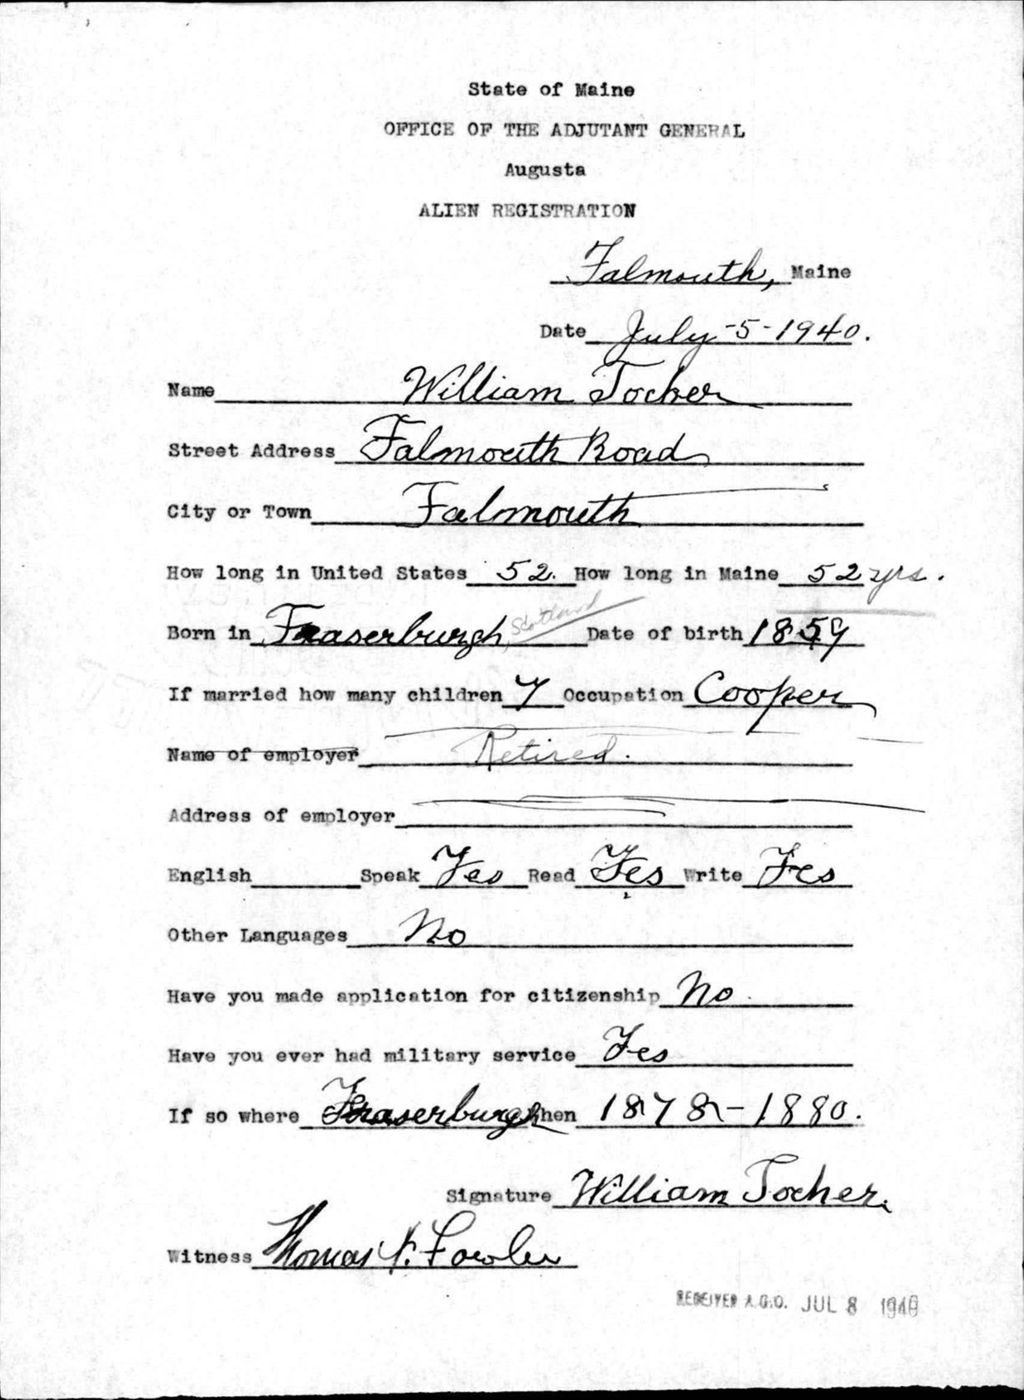 State of Maine
OFFICE OF THE ADJUTANT GENERAL
Augusta
ALIEN REGISTRATION
Falmouth, Maine
Date July-5-1940.
Name William Tocher
Street Address Falmouth Road
City or Town Falmouth
How long in United States 52. How long in Maine 52 yrs.
Born in Fraserburgh, Scotland Date of birth 1859
If married how many children 7 Occupation Cooper
Name of employer Retired.
Address of employer
English Speak Yes Read Yes Write Yes
Other Languages No
Have you made application for citizenship No.
Have you ever had military service Yes
If so where Fraserburgh when 1878-1880.
Signature William Tocher.
Witness Thomas Fowler
RECEIVED A.G.O. JUL 8 1940